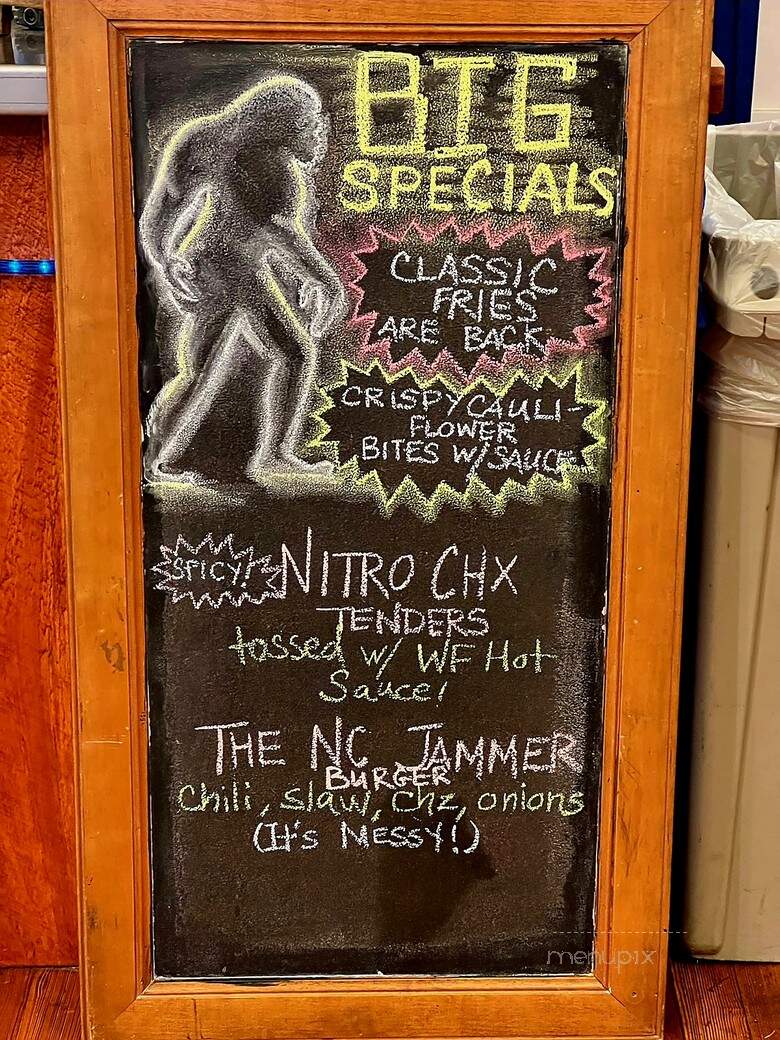 BIG
SPECIALS
CLASSIC
FRIES
ARE BACK
CRISPY CAULI-
FLOWER
BITES W/SAUCE
SPICY! NITRO CHX
TENDERS
tossed w/ WF Hot
Sauce!
THE NC JAMMER
BURGER
Chili, slaw, chz, onions
(It's MESSY!)
menupix